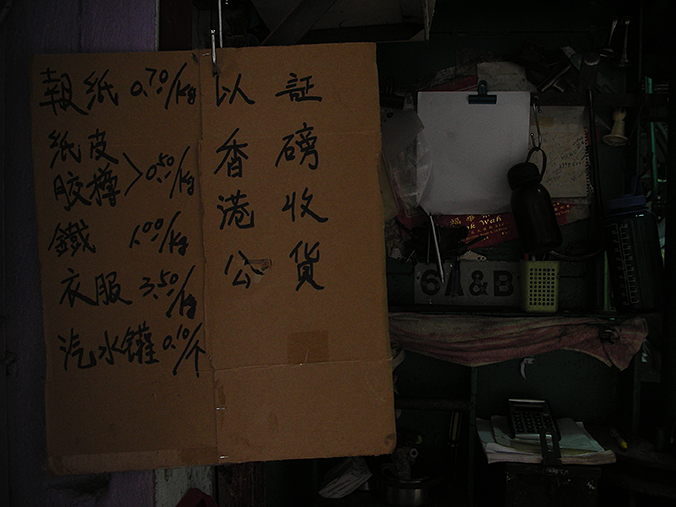 報紙 0.70/kg
紙皮
胶樽 > 0.50/kg
鐵 1.00/kg
衣服 3.50/kg
汽水罐 0.10/个
証磅收貨
以香港公
6A&B